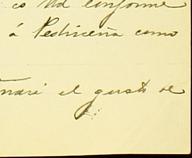 co Ud conforme
á Pedriceña como
el gusto de